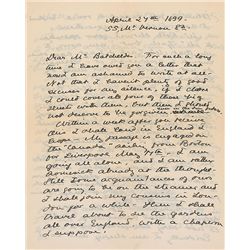 April 27th 1899.
55, Mt Vernon St.
Dear Mr Batchelder. For such a long
time I have owed you a letter that
I am ashamed to write at all.
Not that I haven't plenty of good
excuses for my silence, if I chose
I could cover all of three big
sheets with them, but then I should
not deserve to be forgiven.
Within a week after you receive
this I shall land in England I
hope. My passage is engaged on
the "Canada" sailing from Boston
for Liverpool May
going all alone, and I am rather
homesick already at the thought.
Still some acquaintances of ours
are going to be on the steamer and
I shall join my cousins in London
for a while. Then I shall
travel about to see the gardens
all over England, with a chaperon
I suppose!